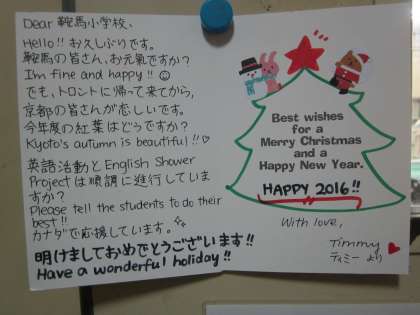 Dear 鞍馬小学校、
Hello!! お久しぶりです。
鞍馬の皆さん、お元気ですか?
I'm fine and happy!!
でも、トロントに帰って来てから、
京都の皆さんが恋しいです。
今年度の紅葉はどうですか?
Kyoto's autumn is beautiful!!
英語活動と English Shower
Project は順調に進行していま
すか?
Please tell the students to do their
best!!
カナダで応援しています。
明けましておめでとうございます!!
Have a wonderful holiday!!
Best wishes
for a
Merry Christmas
and a
Happy New Year.
HAPPY 2016!!
With love,
Timmy
ティミー より